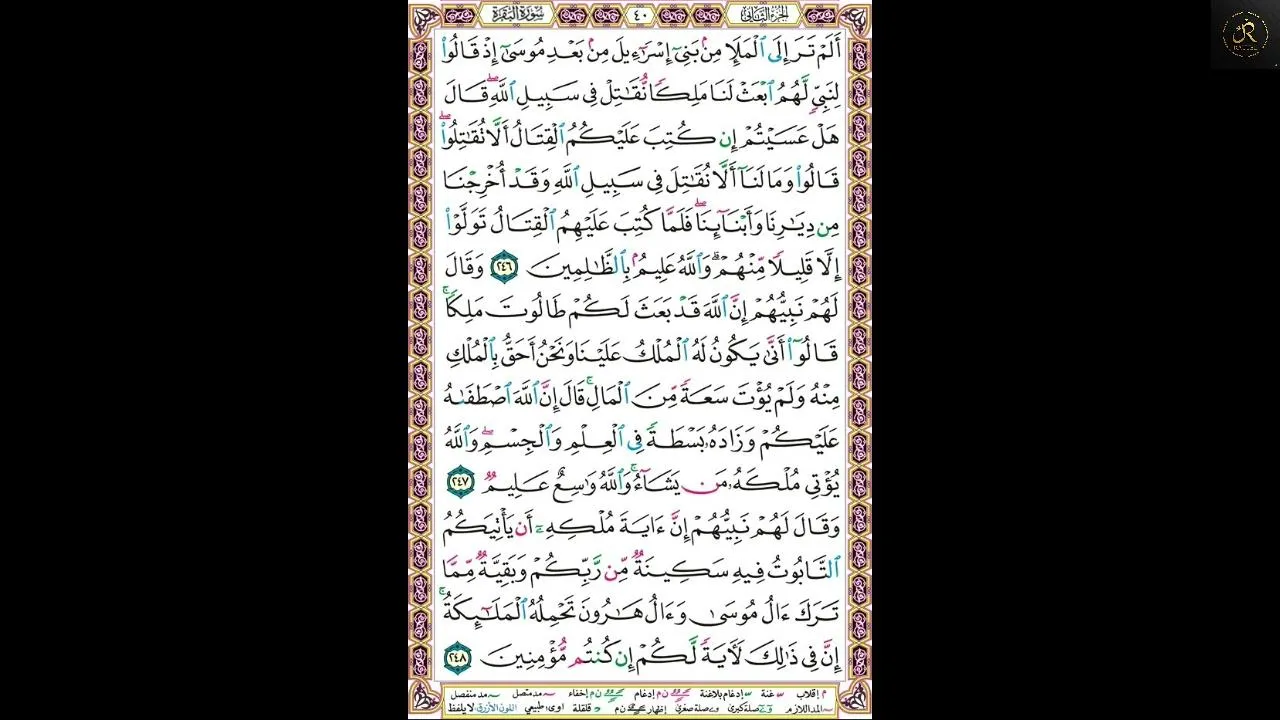 الجزء الثاني ٤٠ سورة البقرة
أَلَمْ تَرَ إِلَى ٱلْمَلَإِ مِنۢ بَنِىٓ إِسْرَٰٓءِيلَ مِنۢ بَعْدِ مُوسَىٰٓ إِذْ قَالُوا۟
لِنَبِىٍّ لَّهُمُ ٱبْعَثْ لَنَا مَلِكًا نُّقَٰتِلْ فِى سَبِيلِ ٱللَّهِ ۖ قَالَ
هَلْ عَسَيْتُمْ إِن كُتِبَ عَلَيْكُمُ ٱلْقِتَالُ أَلَّا تُقَٰتِلُوا۟ ۖ
قَالُوا۟ وَمَا لَنَآ أَلَّا نُقَٰتِلَ فِى سَبِيلِ ٱللَّهِ وَقَدْ أُخْرِجْنَا
مِن دِيَٰرِنَا وَأَبْنَآئِنَا ۖ فَلَمَّا كُتِبَ عَلَيْهِمُ ٱلْقِتَالُ تَوَلَّوْا۟
إِلَّا قَلِيلًا مِّنْهُمْ ۗ وَٱللَّهُ عَلِيمٌۢ بِٱلظَّٰلِمِينَ ٢٤٦ وَقَالَ
لَهُمْ نَبِيُّهُمْ إِنَّ ٱللَّهَ قَدْ بَعَثَ لَكُمْ طَالُوتَ مَلِكًا ۚ
قَالُوٓا۟ أَنَّىٰ يَكُونُ لَهُ ٱلْمُلْكُ عَلَيْنَا وَنَحْنُ أَحَقُّ بِٱلْمُلْكِ
مِنْهُ وَلَمْ يُؤْتَ سَعَةً مِّنَ ٱلْمَالِ ۚ قَالَ إِنَّ ٱللَّهَ ٱصْطَفَىٰهُ
عَلَيْكُمْ وَزَادَهُۥ بَسْطَةً فِى ٱلْعِلْمِ وَٱلْجِسْمِ ۖ وَٱللَّهُ
يُؤْتِى مُلْكَهُۥ مَن يَشَآءُ ۚ وَٱللَّهُ وَٰسِعٌ عَلِيمٌ ٢٤٧
وَقَالَ لَهُمْ نَبِيُّهُمْ إِنَّ ءَايَةَ مُلْكِهِۦٓ أَن يَأْتِيَكُمُ
ٱلتَّابُوتُ فِيهِ سَكِينَةٌ مِّن رَّبِّكُمْ وَبَقِيَّةٌ مِّمَّا
تَرَكَ ءَالُ مُوسَىٰ وَءَالُ هَٰرُونَ تَحْمِلُهُ ٱلْمَلَٰٓئِكَةُ ۚ
إِنَّ فِى ذَٰلِكَ لَءَايَةً لَّكُمْ إِن كُنتُم مُّؤْمِنِينَ ٢٤٨
م إقلاب غنة إدغام بلاغنة ن م إدغام ن م إخفاء مد متصل مد منفصل
المد اللازم صلة كبرى صلة صغرى إظهار ن م قلقلة اوى: طبيعي اللون الأزرق لا يلفظ